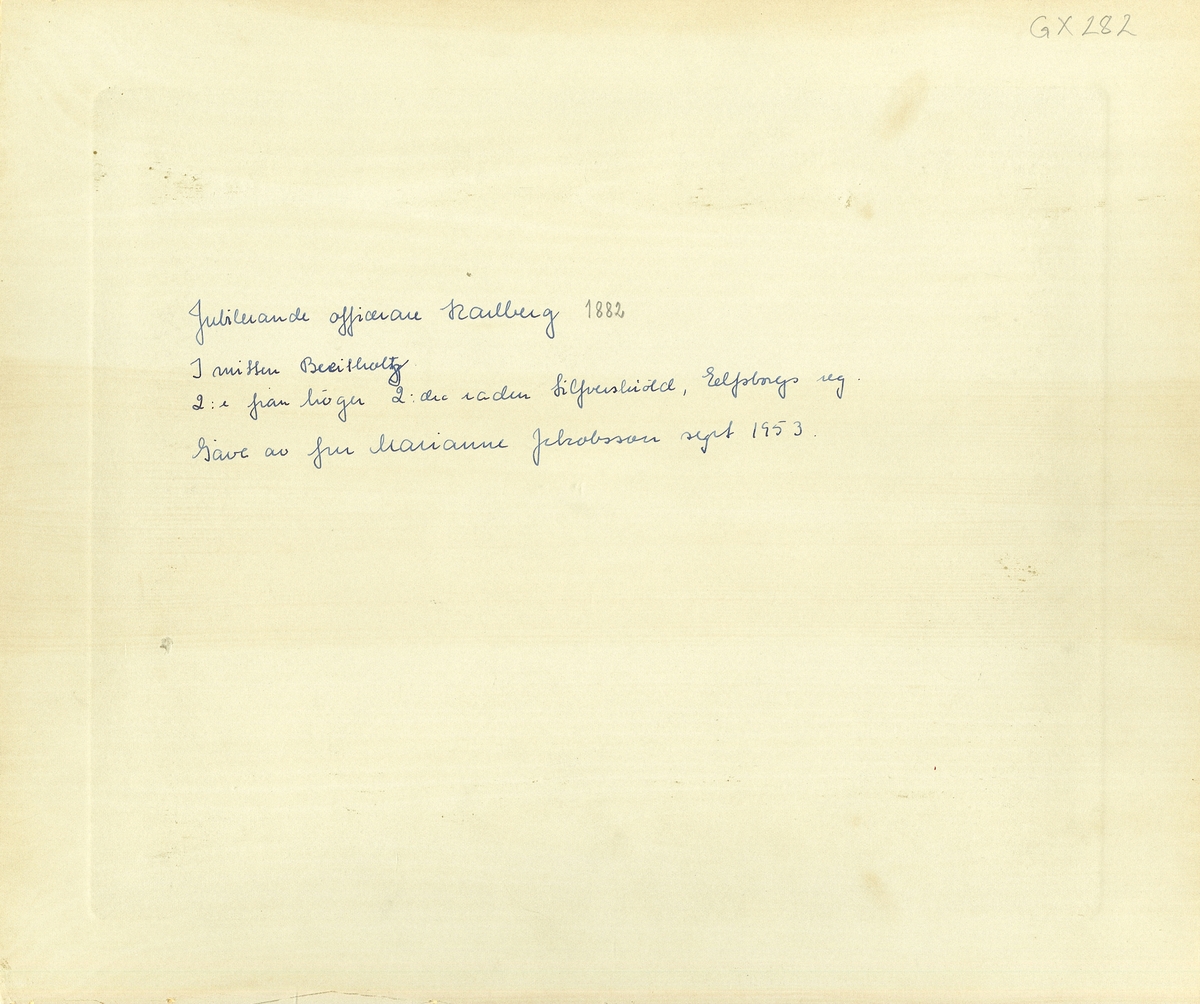 GX 282
Jubilerande officerare Karlberg 1882
I mitten Breitholtz
2:e från höger 2:dra raden Silfverskiöld, Elfsborgs reg.
Gåva av fru Marianne Jakobsson sept 1953.